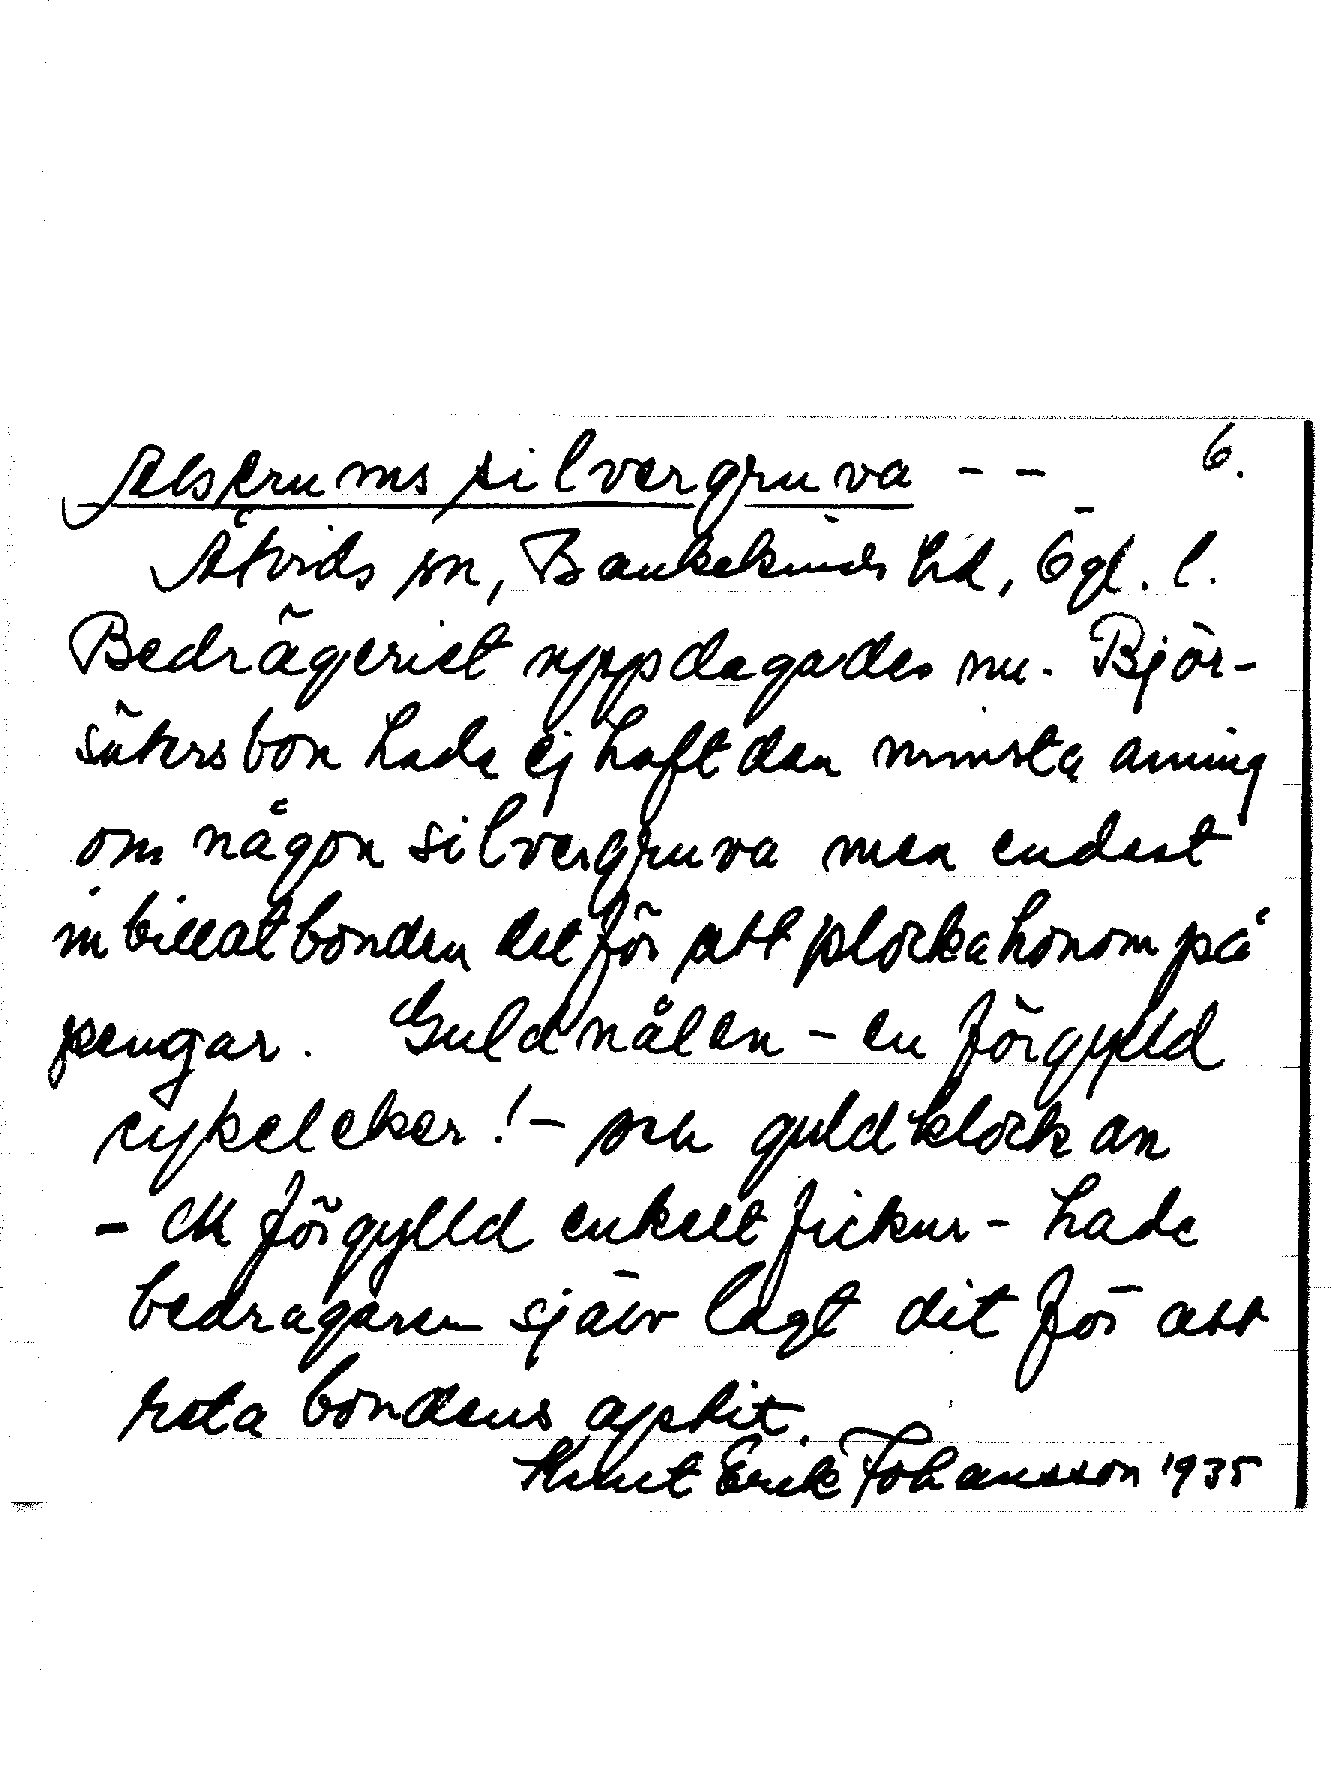 Alskrums silvergruva - - 6.
Åtvids sn, Bankekinds hd, Ögl. l.
Bedrägeriet uppdagades nu. Björ-
sätersbon hade ej haft den minsta aning
om någon silvergruva men endast
inbillat bonden det för att plocka honom på
pengar. Guldnålen - en förgylld
cykeleker! - och guldklockan
- ett förgylld enkelt fickur - hade
bedragaren själv lagt dit för att
reta bondens aptit.
Knut Erik Johansson 1935